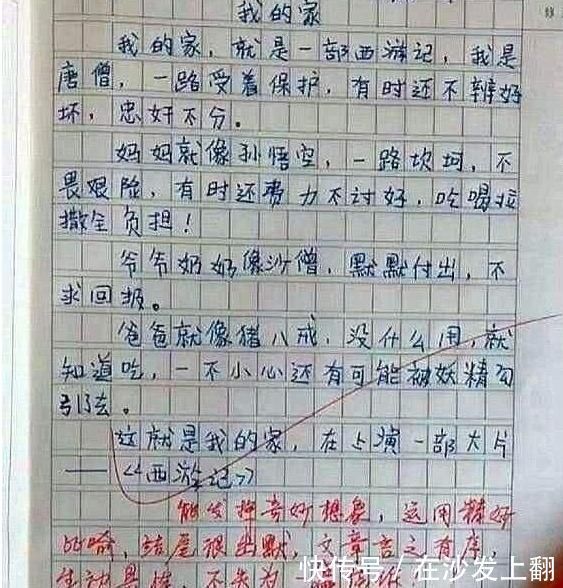 我的家
我的家，就是一部西游记，我是
唐僧，一路受着保护，有时还不辨好
坏，忠奸不分。
妈妈就像孙悟空，一路坎坷，不
畏艰险，有时还费力不讨好，吃喝拉
撒全负担！
爷爷奶奶像沙僧，默默付出，不
求回报。
爸爸就像猪八戒，没什么用，就
知道吃，一不小心还有可能被妖精勾
引了去。
这就是我的家，在上演一部大片
——《西游记》
能发挥奇妙想象，运用精好
比喻，结尾很幽默，文章言之有序，
生动具体，不失为
快传号/在沙发上翻